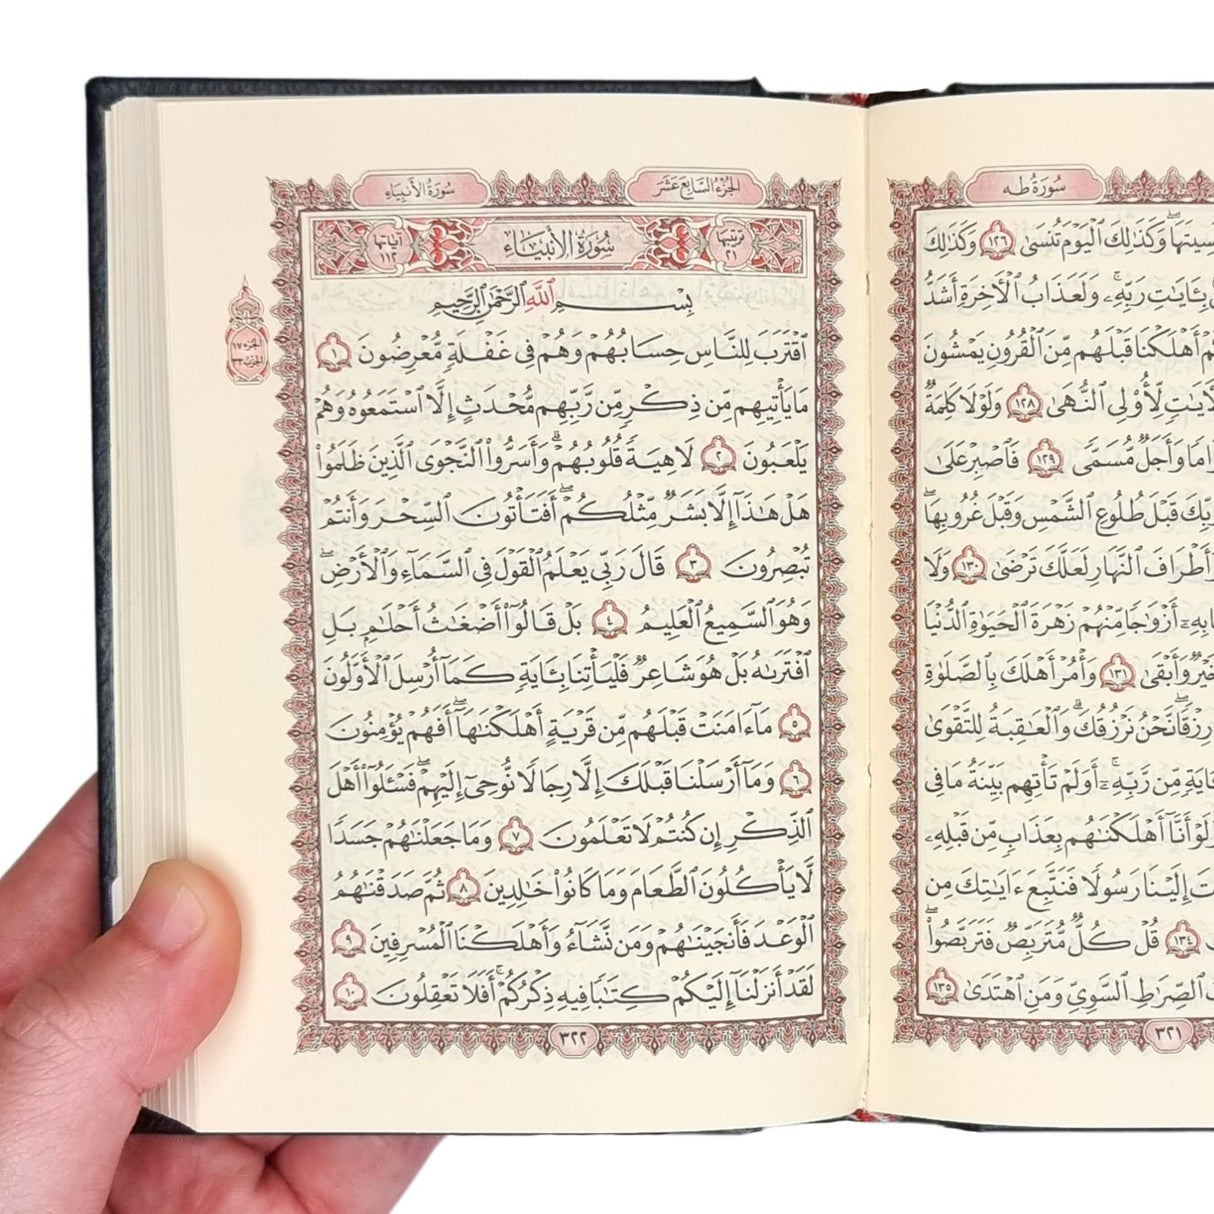 سُورَةُ طه
وَكَذَٰلِكَ ٱلۡيَوۡمَ تُنسَىٰ ١٢٦ وَكَذَٰلِكَ
بِـَٔايَٰتِ رَبِّهِۦۚ وَلَعَذَابُ ٱلۡأَخِرَةِ أَشَدُّ
أَهۡلَكۡنَا قَبۡلَهُم مِّنَ ٱلۡقُرُونِ يَمۡشُونَ
لِّأُوْلِي ٱلنُّهَىٰ ١٢٨ وَلَوۡلَا كَلِمَةٞ
وَأَجَلٞ مُّسَمّٗى ١٢٩ فَٱصۡبِرۡ عَلَىٰ
قَبۡلَ طُلُوعِ ٱلشَّمۡسِ وَقَبۡلَ غُرُوبِهَاۖ
أَطۡرَافَ ٱلنَّهَارِ لَعَلَّكَ تَرۡضَىٰ ١٣٠ وَلَا
أَزۡوَٰجٗا مِّنۡهُمۡ زَهۡرَةَ ٱلۡحَيَوٰةِ ٱلدُّنۡيَا
وَأَبۡقَىٰ ١٣١ وَأۡمُرۡ أَهۡلَكَ بِٱلصَّلَوٰةِ
رِزۡقٗاۖ نَّحۡنُ نَرۡزُقُكَۗ وَٱلۡعَٰقِبَةُ لِلتَّقۡوَىٰ
مِّن رَّبِّهِۦٓۚ أَوَلَمۡ تَأۡتِهِم بَيِّنَةُ مَا فِي
أَنَّآ أَهۡلَكۡنَٰهُم بِعَذَابٖ مِّن قَبۡلِهِۦ
إِلَيۡنَا رَسُولٗا فَنَتَّبِعَ ءَايَٰتِكَ مِن
١٣٤ قُلۡ كُلّٞ مُّتَرَبِّصٞ فَتَرَبَّصُواْۖ
ٱلصِّرَٰطِ ٱلسَّوِيِّ وَمَنِ ٱهۡتَدَىٰ ١٣٥
٣٢١
الجُزءُ السَّابِعَ عَشَرَ سُورَةُ الأَنبِيَاءِ
ترتيبها ٢١ سُورَةُ الأَنبِيَاءِ آياتها ١١٢
بِسۡمِ ٱللَّهِ ٱلرَّحۡمَٰنِ ٱلرَّحِيمِ
ٱقۡتَرَبَ لِلنَّاسِ حِسَابُهُمۡ وَهُمۡ فِي غَفۡلَةٖ مُّعۡرِضُونَ ١
مَا يَأۡتِيهِم مِّن ذِكۡرٖ مِّن رَّبِّهِم مُّحۡدَثٍ إِلَّا ٱسۡتَمَعُوهُ وَهُمۡ
يَلۡعَبُونَ ٢ لَاهِيَةٗ قُلُوبُهُمۡۗ وَأَسَرُّواْ ٱلنَّجۡوَى ٱلَّذِينَ ظَلَمُواْ
هَلۡ هَٰذَآ إِلَّا بَشَرٞ مِّثۡلُكُمۡۖ أَفَتَأۡتُونَ ٱلسِّحۡرَ وَأَنتُمۡ
تُبۡصِرُونَ ٣ قَالَ رَبِّي يَعۡلَمُ ٱلۡقَوۡلَ فِي ٱلسَّمَآءِ وَٱلۡأَرۡضِۖ
وَهُوَ ٱلسَّمِيعُ ٱلۡعَلِيمُ ٤ بَلۡ قَالُوٓاْ أَضۡغَٰثُ أَحۡلَٰمِۭ بَلِ
ٱفۡتَرَىٰهُ بَلۡ هُوَ شَاعِرٞ فَلۡيَأۡتِنَا بِـَٔايَةٖ كَمَآ أُرۡسِلَ ٱلۡأَوَّلُونَ
٥ مَآ ءَامَنَتۡ قَبۡلَهُم مِّن قَرۡيَةٍ أَهۡلَكۡنَٰهَآۖ أَفَهُمۡ يُؤۡمِنُونَ
٦ وَمَآ أَرۡسَلۡنَا قَبۡلَكَ إِلَّا رِجَالٗا نُّوحِيٓ إِلَيۡهِمۡۖ فَسۡـَٔلُوٓاْ أَهۡلَ
ٱلذِّكۡرِ إِن كُنتُمۡ لَا تَعۡلَمُونَ ٧ وَمَا جَعَلۡنَٰهُمۡ جَسَدٗا
لَّا يَأۡكُلُونَ ٱلطَّعَامَ وَمَا كَانُواْ خَٰلِدِينَ ٨ ثُمَّ صَدَقۡنَٰهُمُ
ٱلۡوَعۡدَ فَأَنجَيۡنَٰهُمۡ وَمَن نَّشَآءُ وَأَهۡلَكۡنَا ٱلۡمُسۡرِفِينَ ٩
لَقَدۡ أَنزَلۡنَآ إِلَيۡكُمۡ كِتَٰبٗا فِيهِ ذِكۡرُكُمۡۚ أَفَلَا تَعۡقِلُونَ ١٠
٣٢٢
الجزء ١٧
الحزب ٣٣